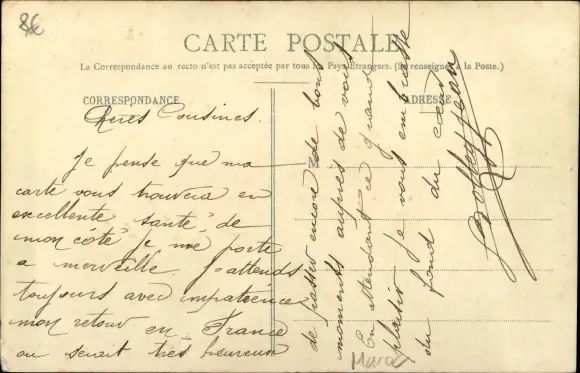 86
CARTE POSTALE
La Correspondance au recto n'est pas acceptée par tous les Pays Etrangers. (Se renseigner à la Poste.)
CORRESPONDANCE
ADRESSE
M
Chères Cousines.
Je pense que ma
carte vous trouvera en
excellente santé, de
mon côté je me porte
a merveille. J'attends
toujours avec impatience
mon retour en France
ou serait très heureux
de passer encore de bons
moments auprès de vous
En attendant ce grand
plaisir je vous embrasse
du fond du cœur
Maroc